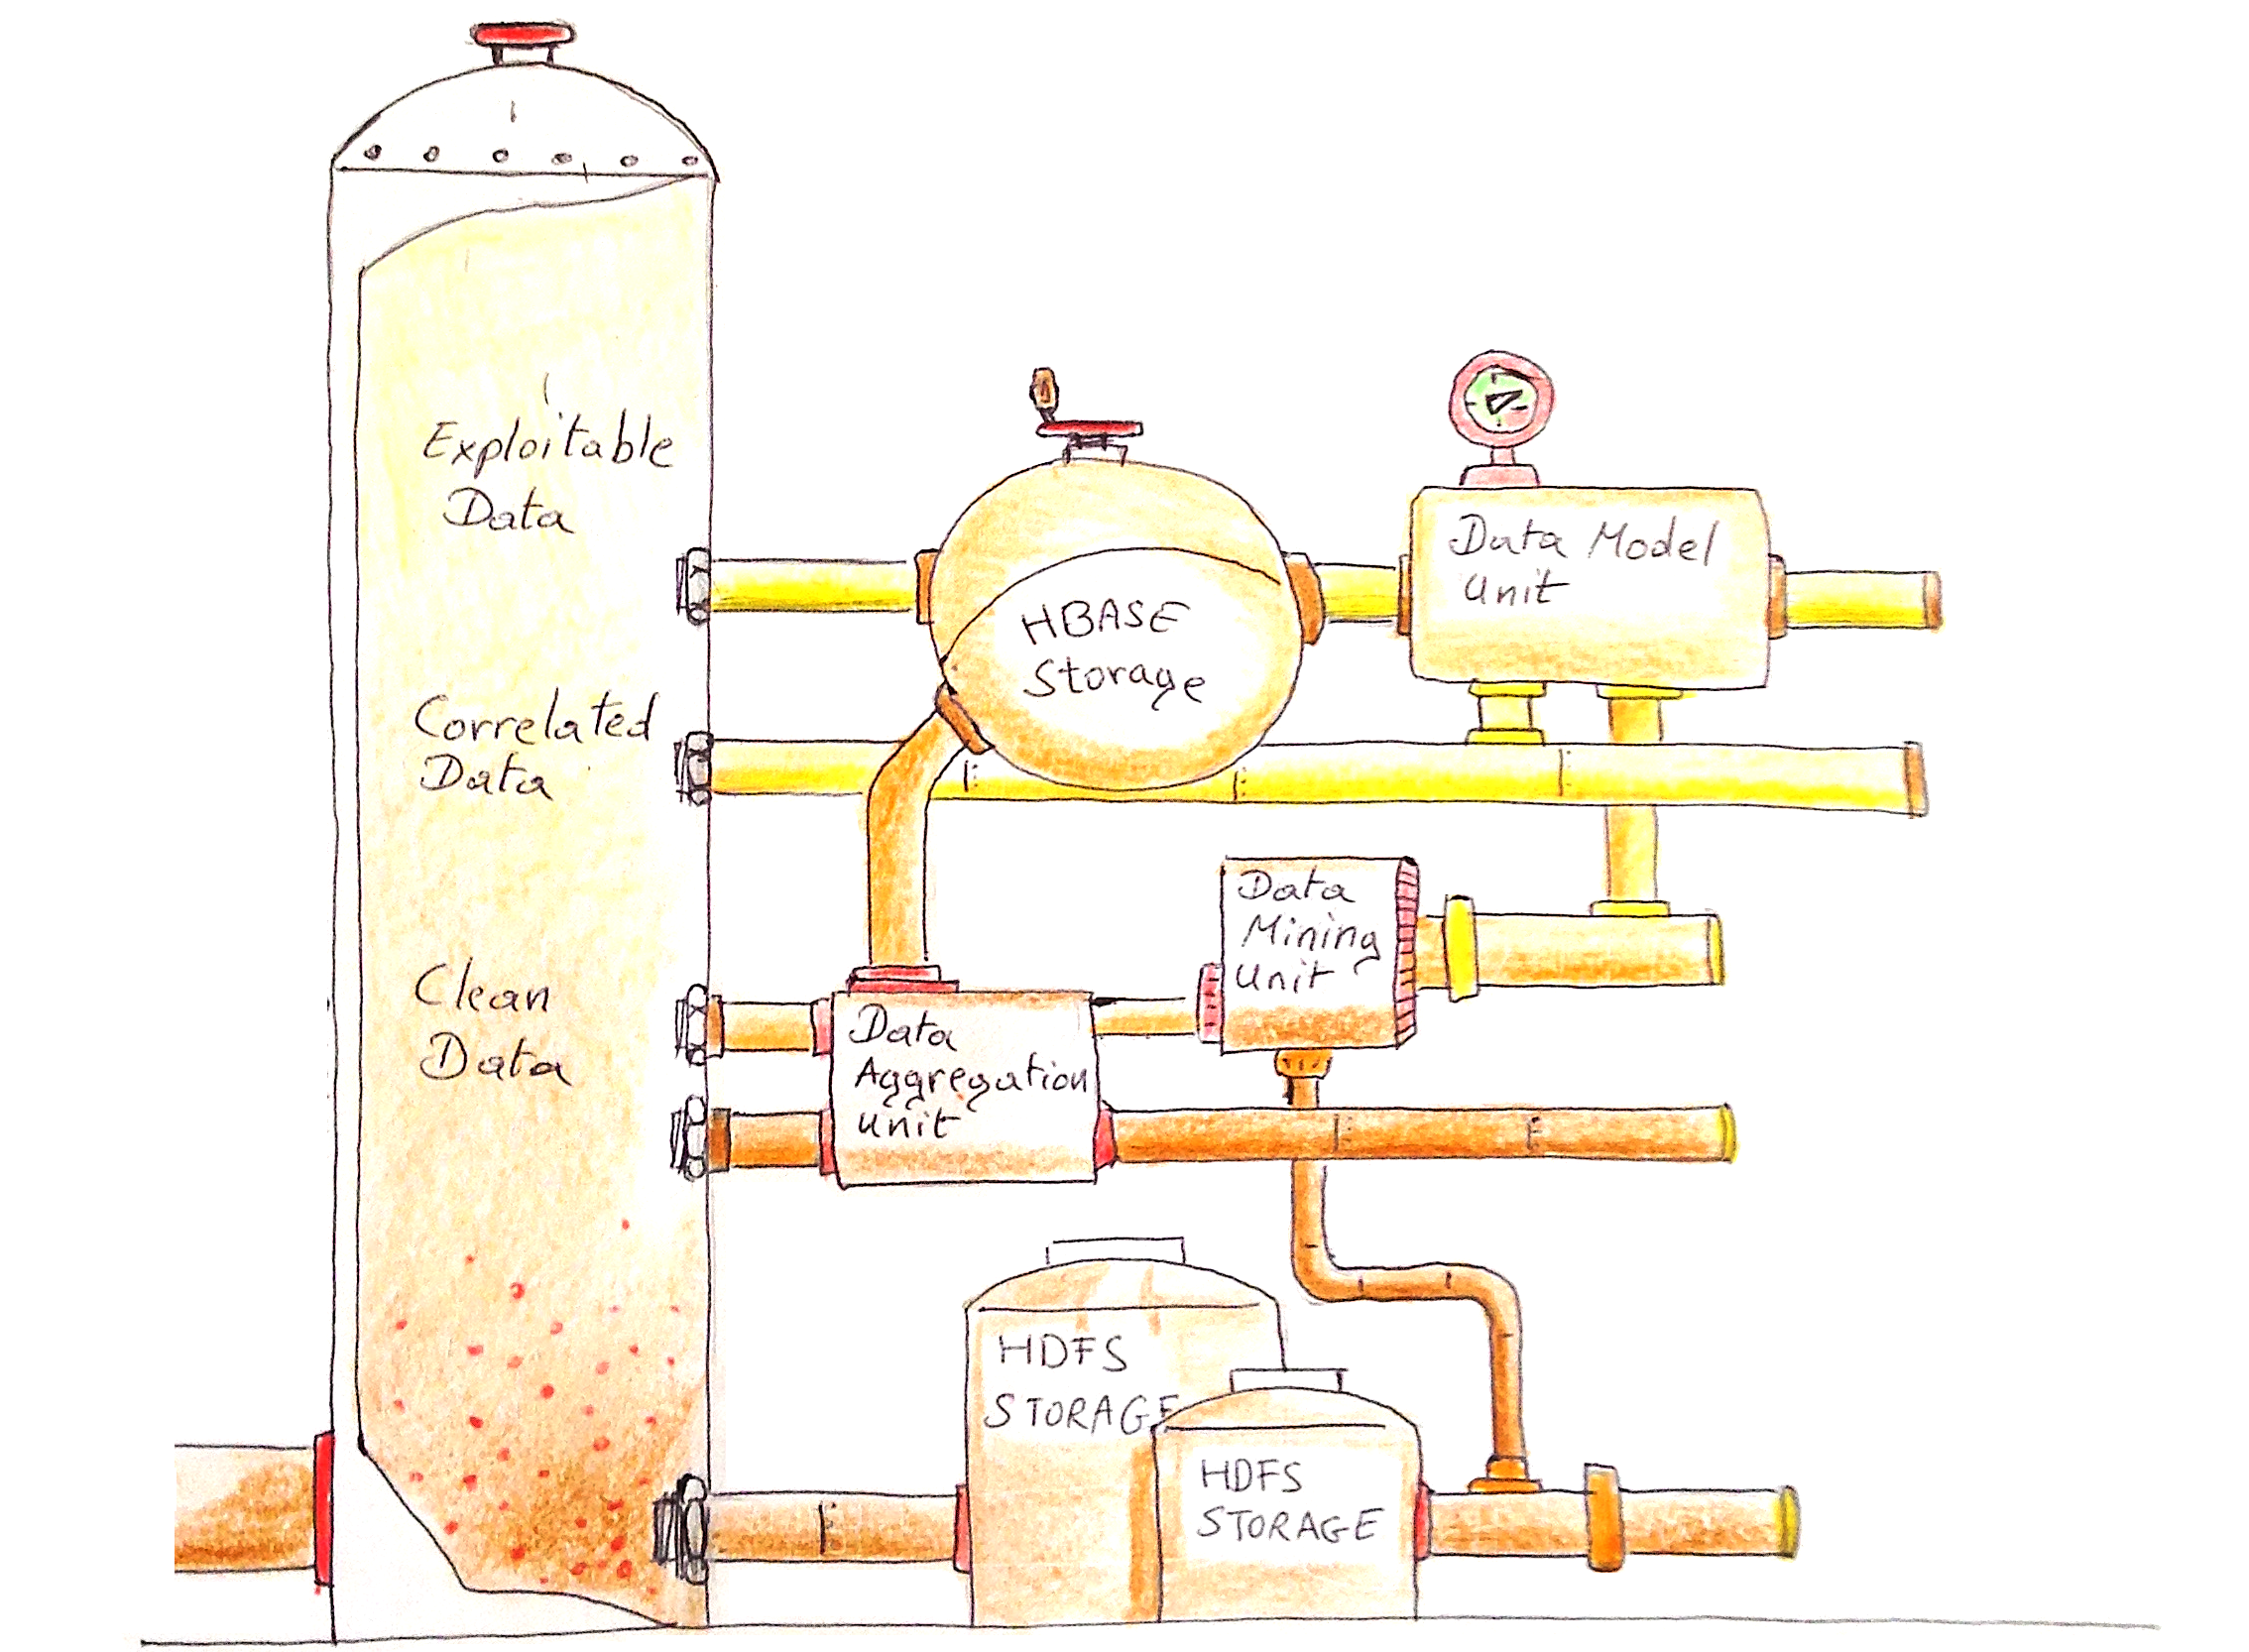 Exploitable
Data
Correlated
Data
Clean
Data
HBASE
Storage
Data Model
Unit
Data
Mining
Unit
Data
Aggregation
Unit
HDFS
STORAGE
HDFS
STORAGE